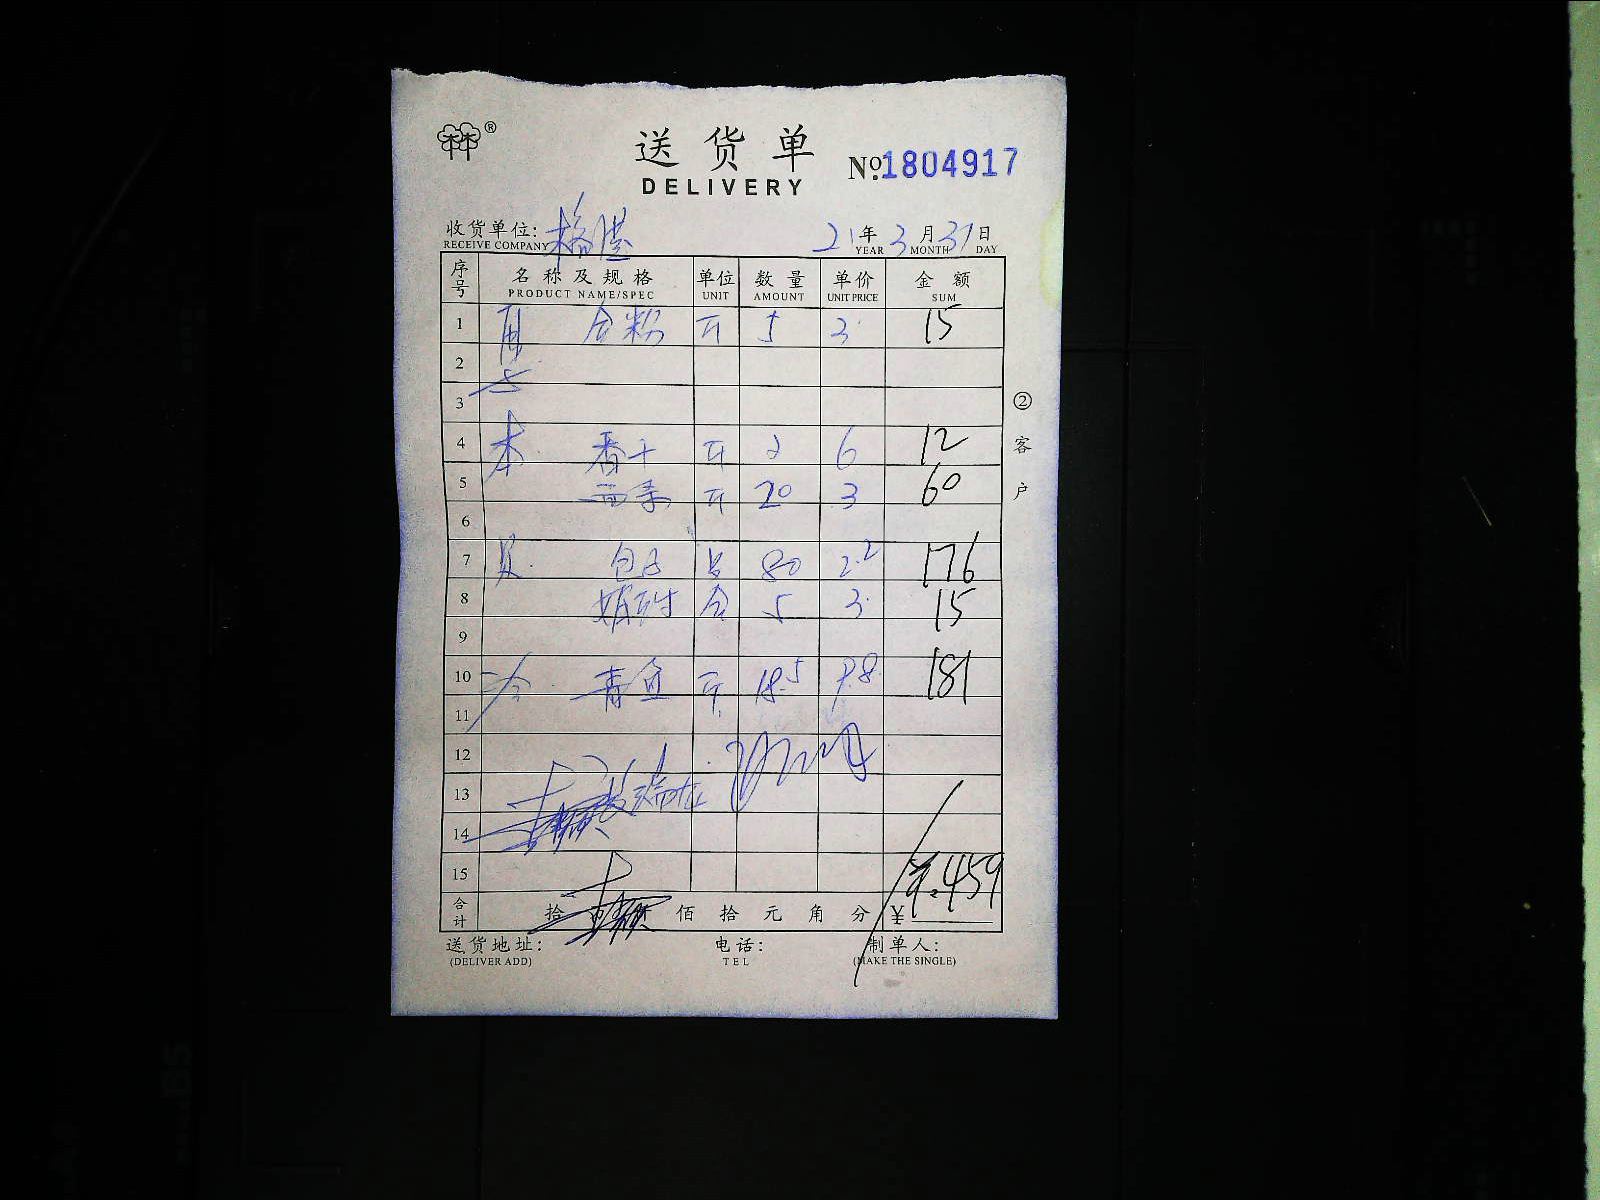 送货单
DELIVERY
№ 1804917
收货单位: 21年3月31日
RECEIVE COMPANY YEAR MONTH DAY
序号 名称及规格 单位 数量 单价 金额
PRODUCT NAME/SPEC UNIT AMOUNT UNIT PRICE SUM
1 合粉 斤 5 3 15
2
3
4 本 香干 斤 2 6 12
5 斤 20 3 60
6
7 80 2.2 176
8 合 5 3 15
9
10 冷 青鱼 斤 18.5 9.8 181
11
12
13
14
15
合计 拾 佰 拾 元 角 分 ¥ 459
② 客户
送货地址: 电话: 制单人:
(DELIVER ADD) TEL (MAKE THE SINGLE)